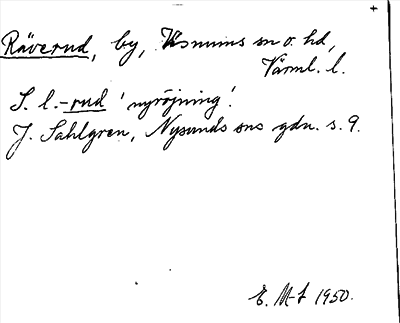 +
Räverud, by, Visnums sn o. hd,
Värml. l.
S. l. -rud 'nyröjning'.
J. Sahlgren, Nysunds sns gdn. s. 9.
E. M-t 1950.